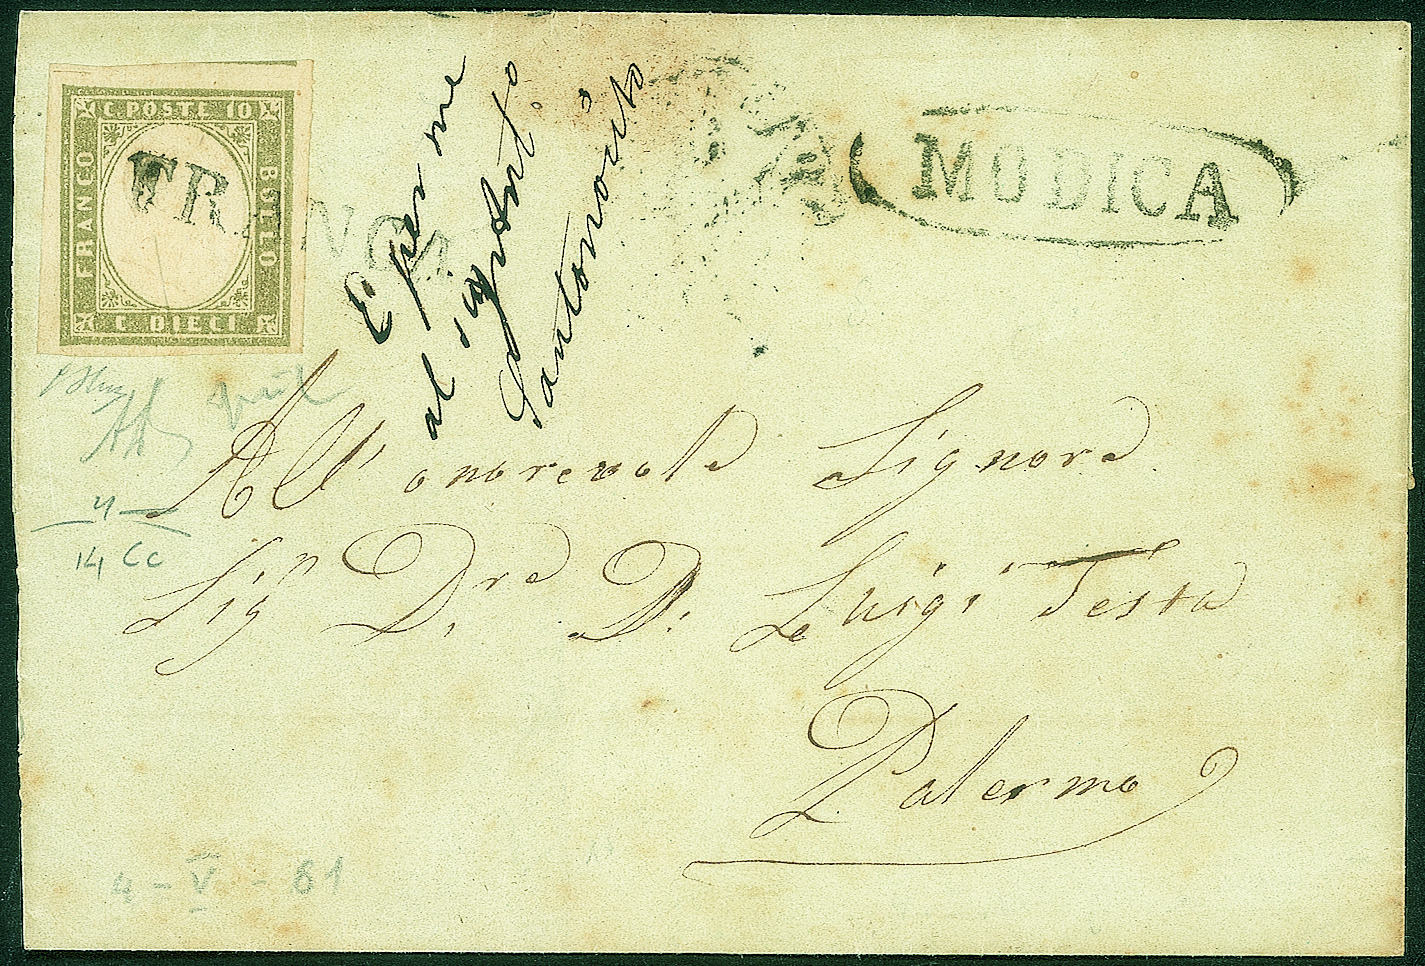 C. POSTE 10
FRANCO
BOLLO
C. DIECI
FRANCA
MODICA
E per me
al sigr Ant.º
Santonocito
All' onorevole Signore
Sigr Dre D. Luigi Testa
Palermo
4
14 Cc
4 - V - 61